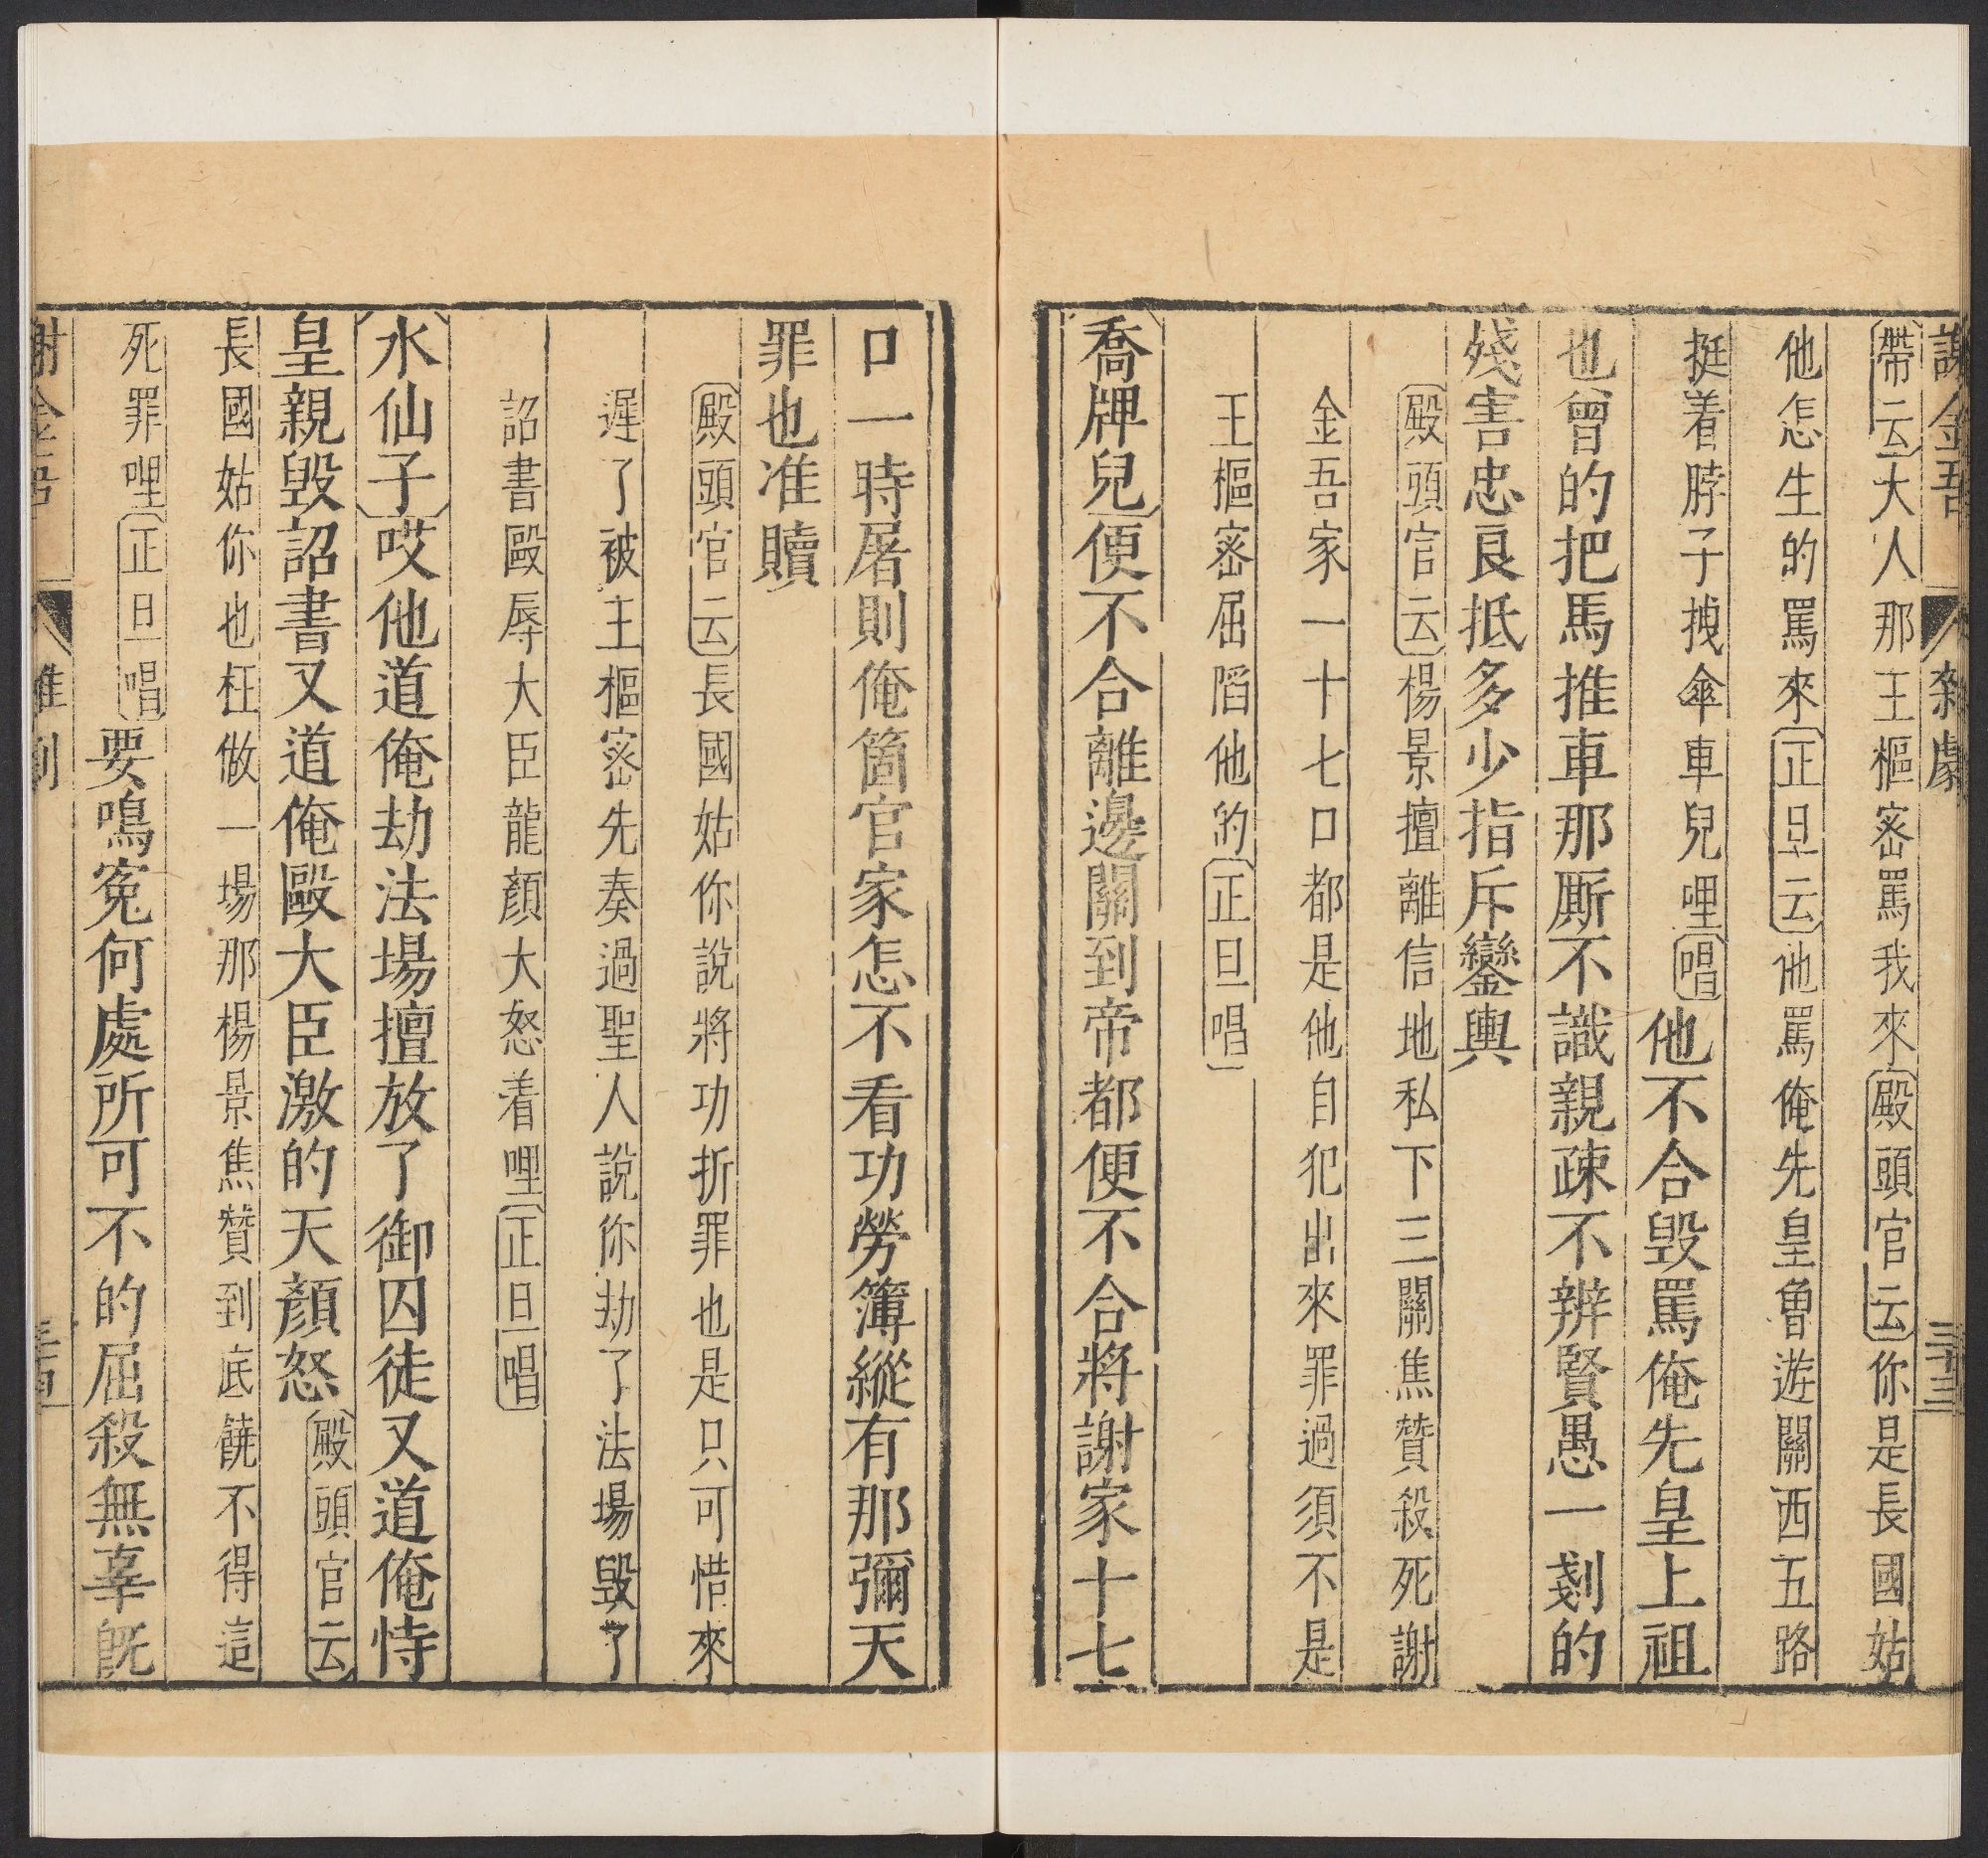 謝金吾 雜劇 三十三
〔帶云〕大人那王樞密罵我來〔殿頭官云〕你是長國姑
他怎生的罵來〔正旦云〕他罵俺先皇曾遊關西五路
挺着脖子拽傘車兒哩〔唱〕他不合毀罵俺先皇上祖
也曾的把馬推車那厮不識親疎不辨賢愚一剗的
殘害忠良抵多少指斥鑾輿
〔殿頭官云〕楊景擅離信地私下三關焦贊殺死謝
金吾家一十七口都是他自犯出來罪過須不是
王樞密屈陷他的〔正旦唱〕
〔喬牌兒〕便不合離邊關到帝都便不合將謝家十七
口一時屠則俺箇官家怎不看功勞簿縱有那彌天
罪也准贖
〔殿頭官云〕長國姑你說將功折罪也是只可惜來
遲了被王樞密先奏過聖人說你劫了法場毀了
詔書毆辱大臣龍顏大怒着哩〔正旦唱〕
〔水仙子〕哎他道俺劫法場擅放了御囚徒又道俺恃
皇親毀詔書又道俺毆大臣激的天顏怒〔殿頭官云〕
長國姑你也枉做一場那楊景焦贊到底饒不得這
死罪哩〔正旦唱〕要鳴寃何處所可不的屈殺無辜旣
謝金吾 雜劇